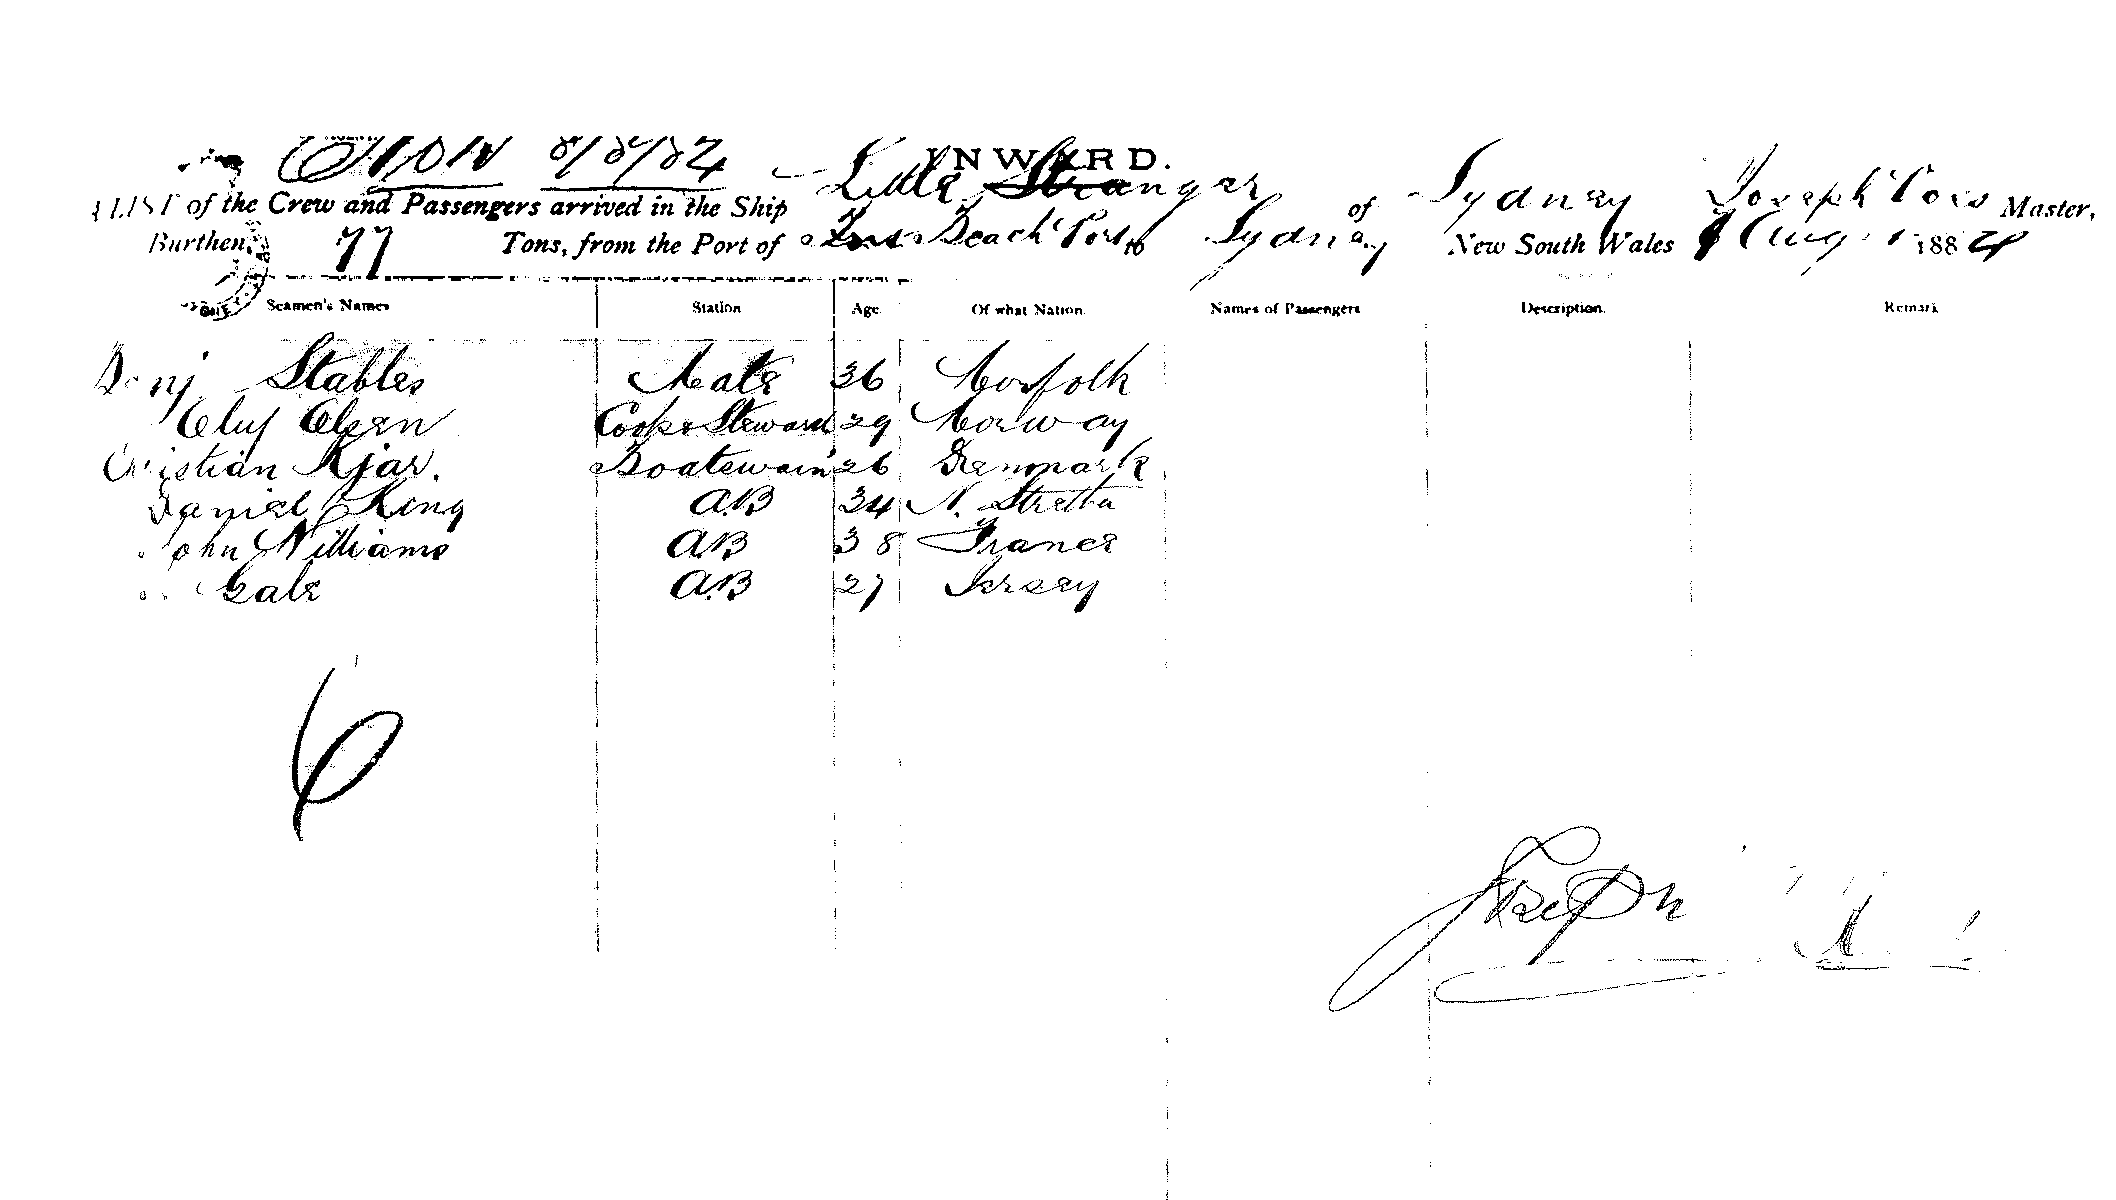 8/8/84
INWARD.
LIST of the Crew and Passengers arrived in the Ship Little Stranger of Sydney Joseph Master,
Burthen, 77 Tons, from the Port of Beach Port to Sydney New South Wales Aug 1884
Seamen's Names Station Age Of what Nation Names of Passengers Description. Remark
Benj Stables Mate 36 Norfolk
Oluf Olsen Cook & Steward 29 Norway
Cristian Kjar. Boatswain 26 Denmark
Daniel King A.B 34 N.
John Williams A.B 38 France
Gale A.B 27 Jersey
6
Joseph